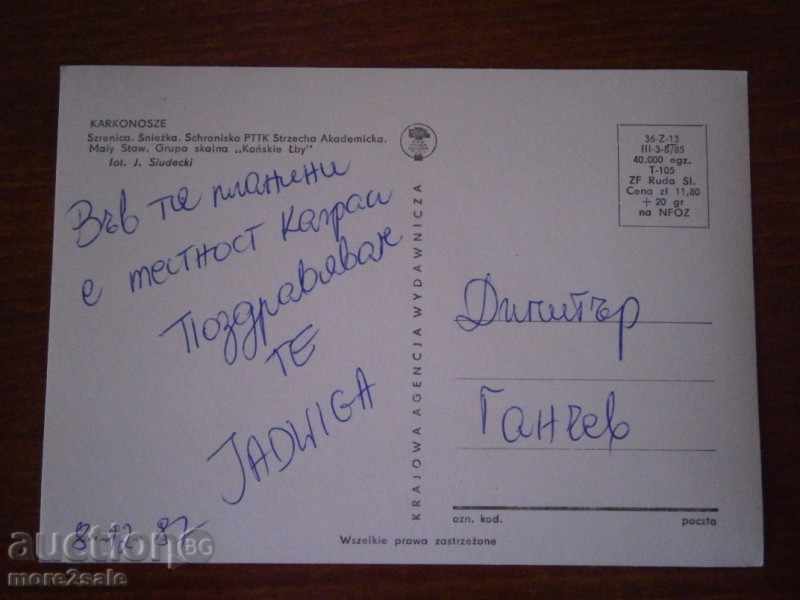 KARKONOSZE
Szrenica. Śnieżka. Schronisko PTTK Strzecha Akademicka.
Mały Staw. Grupa skalna „Końskie Łby"
fot. J. Siudecki
Във тие планини
е местност Карпач
Поздравявам
ТЕ
JADWIGA
8-12 87
KRAJOWA AGENCJA WYDAWNICZA
36-Z-13
III-3-8/85
40.000 egz.
T-105
ZF Ruda Śl.
Cena zł 11,80
+ 20 gr
na NFOZ
Димитър
Ганчев
ozn. kod. poczta
Wszelkie prawa zastrzeżone
auctionBG
more2sale